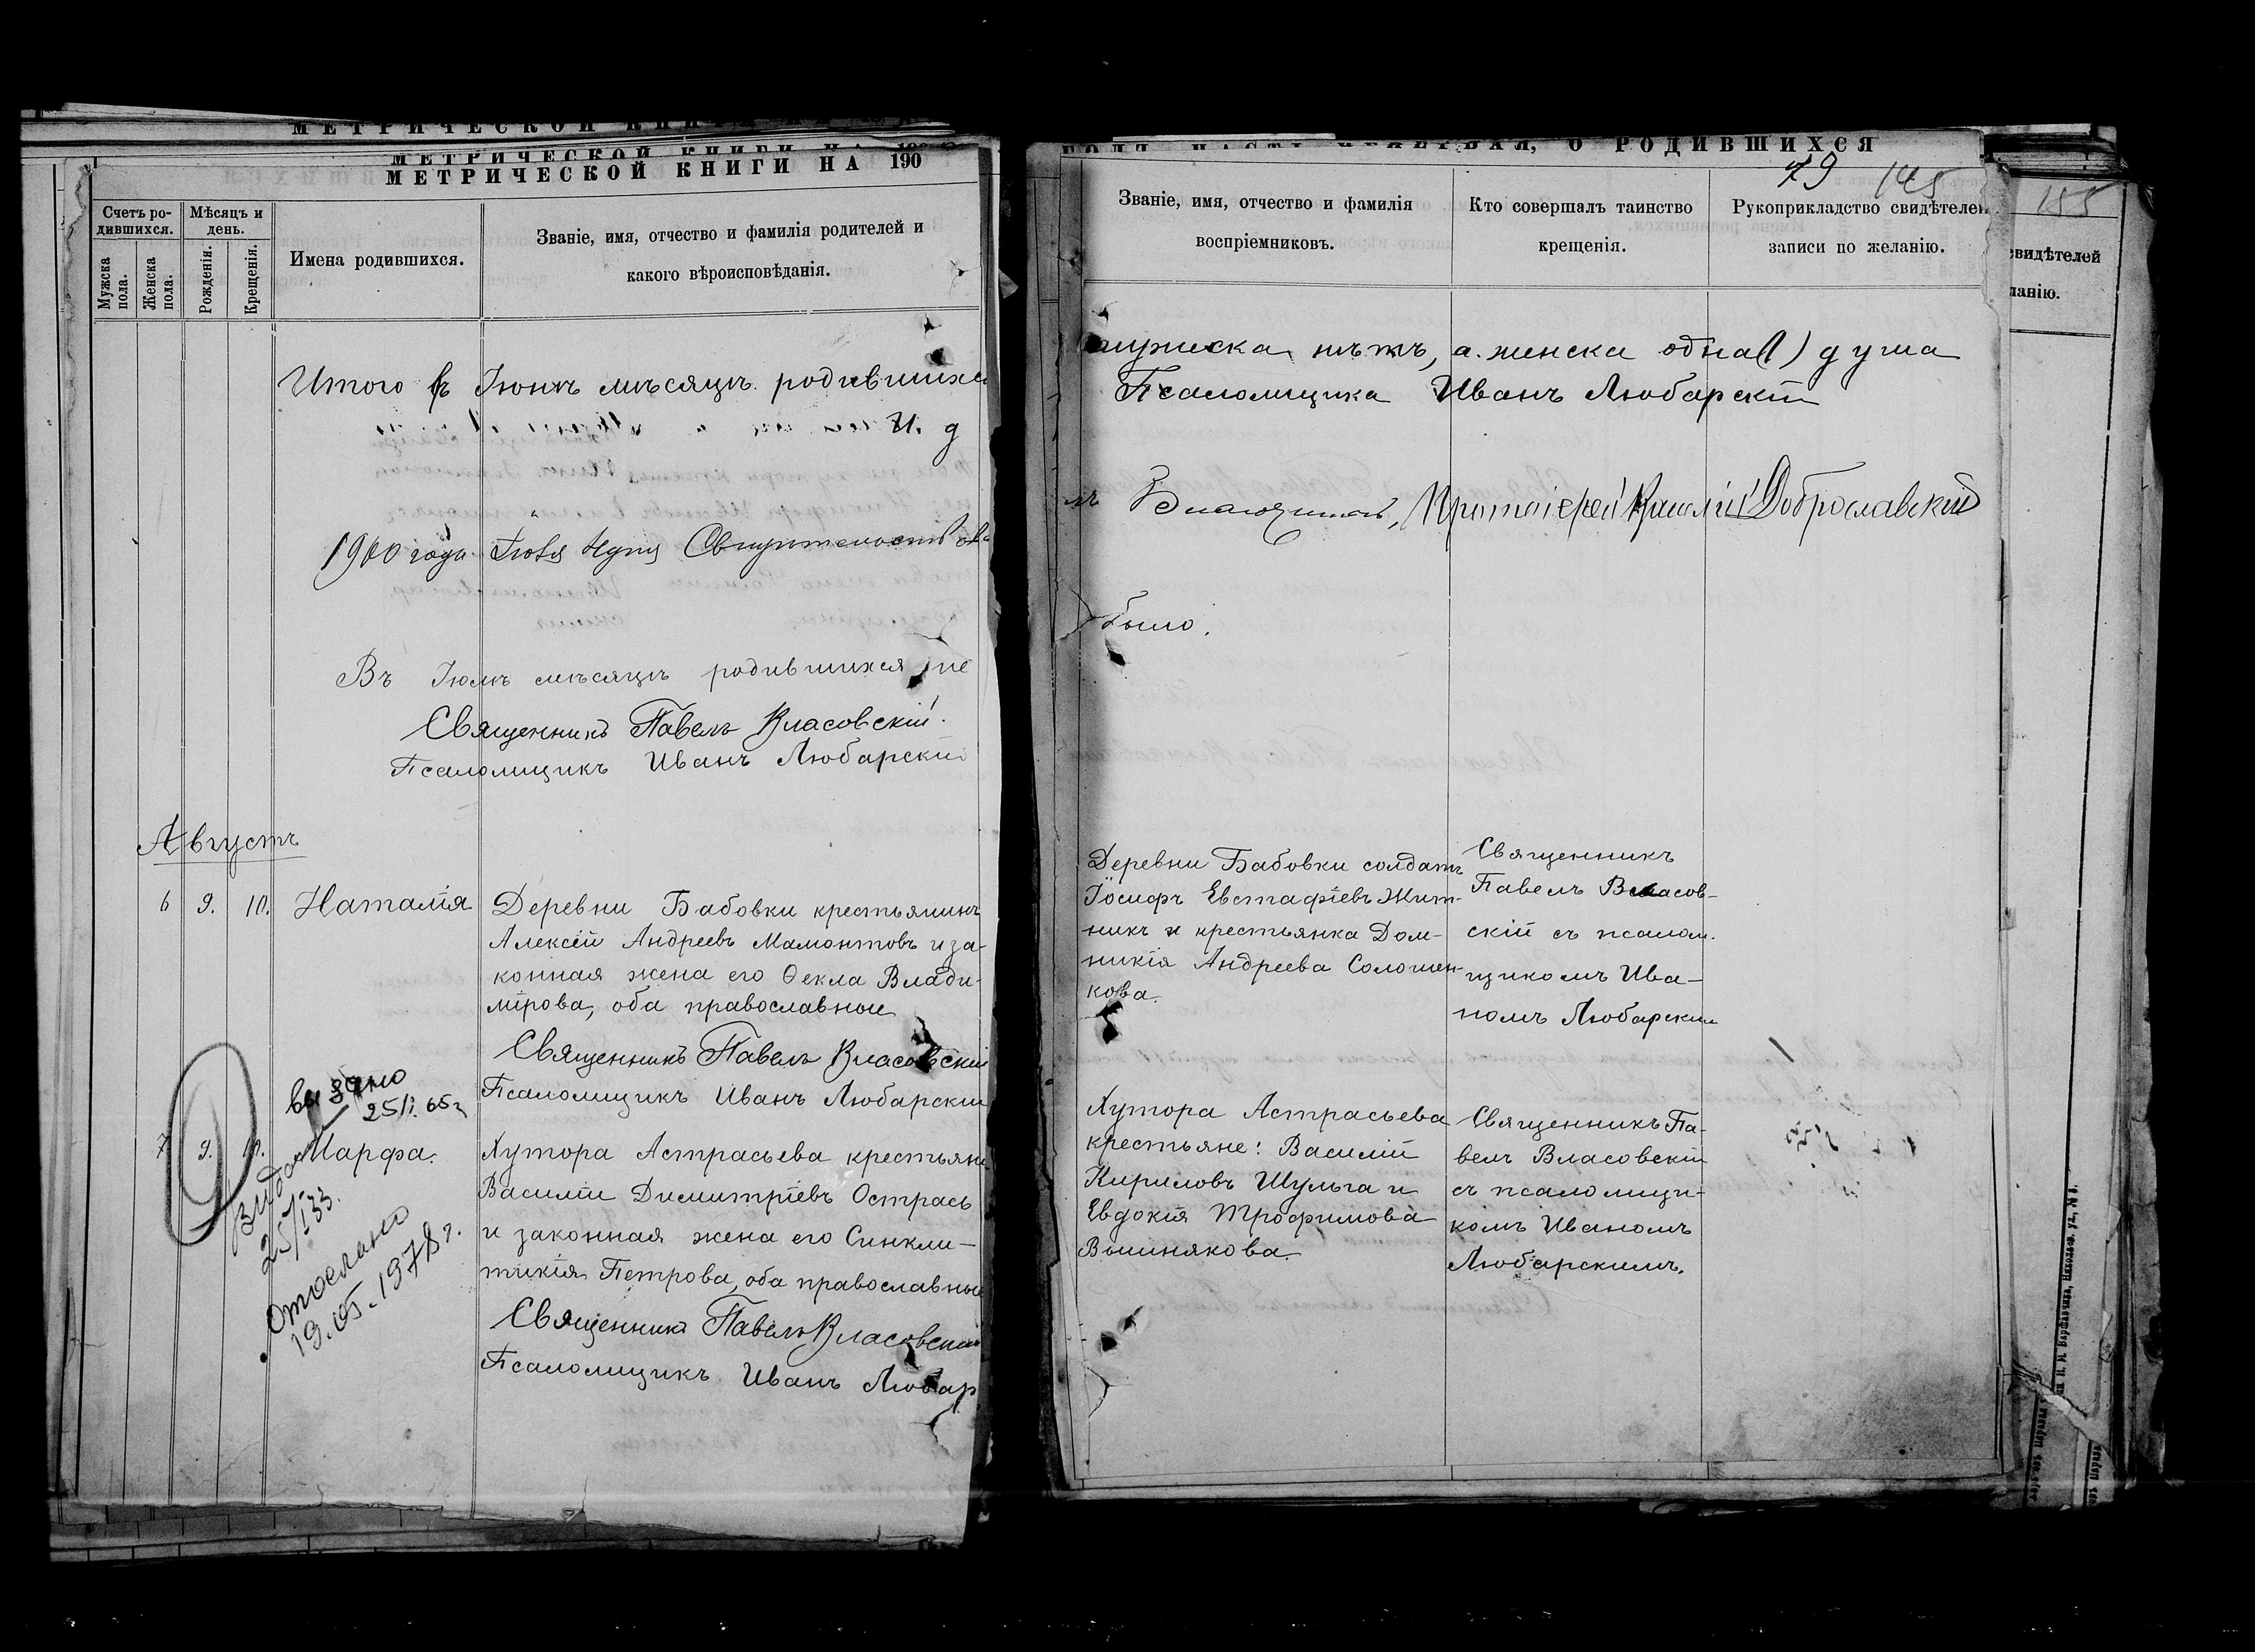 МЕТРИЧЕСКОЙ КНИГИ НА 190
Счетъ ро-
дившихся.
Мужска
пола.
Женска
пола.
Мѣсяцъ и
день.
Рожденія.
Крещенія.
Имена родившихся.
Званіе, имя, отчество и фамилія родителей и
какого вѣроисповѣданія.
Итого въ Іюнѣ мѣсяцѣ родившихся
И. д
1900 года
Въ Іюлѣ мѣсяцѣ родившихся не
Священникъ Павелъ Власовскій.
Псаломщикъ Иванъ Любарскій
Августъ
6 9. 10. Наталія
Деревни Бабовки крестьянинъ
Алексій Андреевъ Мамонтовъ и за-
конная жена его Ѳекла Влади-
мірова, оба православные
Священникъ Павелъ Власовскій
Псаломщикъ Иванъ Любарскій
7 9. 10. Марфа.
Хутора Астрасьева крестьяне
Василій Димитріевъ Острась
и законная жена его Синкли-
тикія Петрова, оба православные
Священникъ Павелъ Власовскій
Псаломщикъ Иванъ Любар
выдано
Отослано
19.05.1978 г.
ЧАСТЬ ПЕРВАЯ, О РОДИВШИХСЯ
79 145
Званіе, имя, отчество и фамилія
воспріемниковъ.
Кто совершалъ таинство
крещенія.
Рукоприкладство свидѣтелей
записи по желанію.
мужска нѣтъ, а женска одна (1) душа
Псаломщика Иванъ Любарскій
Протоіерей Доброславскій
было.
Деревни Бабовки солдатъ
Іосифъ Евстафіевъ Жит-
никъ и крестьянка Дом-
никія Андреева Соломен-
кова.
Священникъ
Павелъ Власов-
скій съ псалом.
щикомъ Ива-
номъ Любарским
Хутора Астрасьева
крестьяне: Василій
Кириловъ Шульга и
Евдокія Трофимова
Вишнякова.
Священникъ Па-
велъ Власовскій
съ псаломщи-
комъ Иваномъ
Любарскимъ.
155
свидѣтелей
ланію.